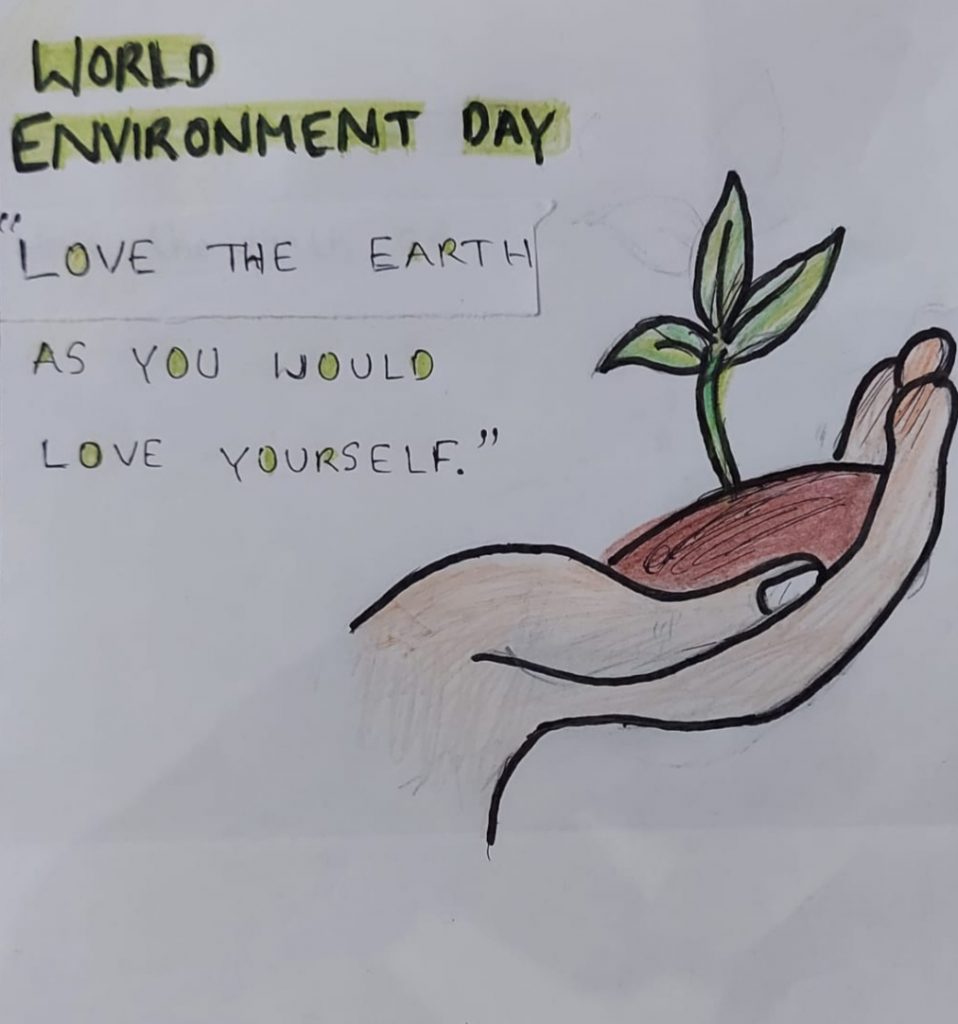 WORLD
ENVIRONMENT DAY
"LOVE THE EARTH
AS YOU WOULD
LOVE YOURSELF."